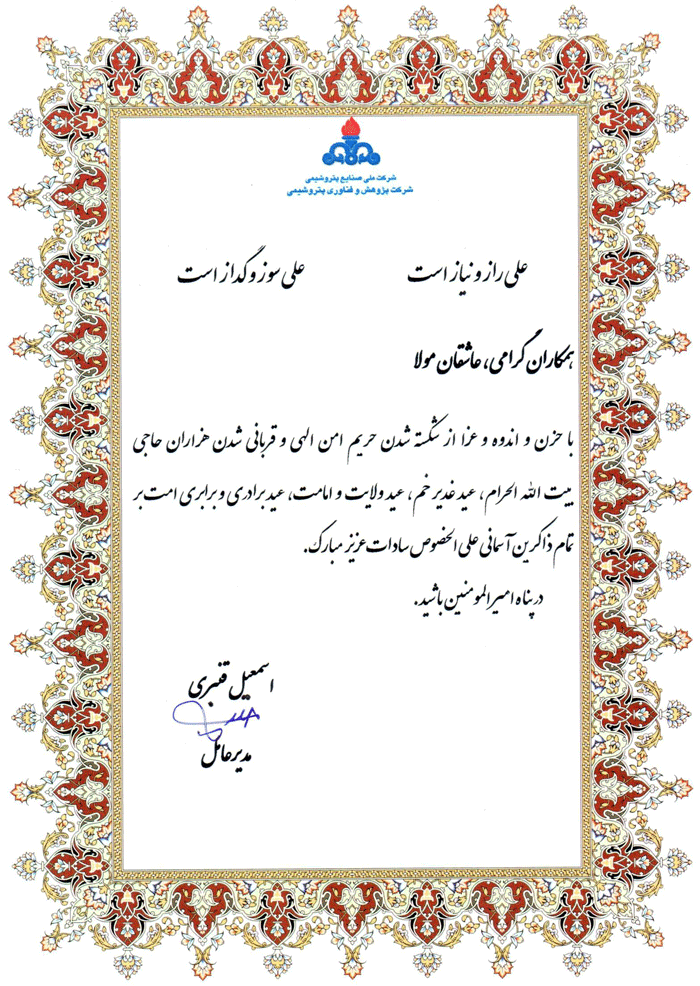 شرکت ملی صنایع پتروشیمی
شرکت پژوهش و فناوری پتروشیمی
علی راز و نیاز است علی سوز و گداز است
همکاران گرامی، عاشقان مولا
با حزن و اندوه و عزا از شکسته شدن حریم امن الهی و قربانی شدن هزاران حاجی
بیت الله الحرام، عید غدیر خم، عید ولایت و امامت، عید برادری و برابری امت بر
تمام ذاکرین آسمانی علی الخصوص سادات عزیز مبارک.
در پناه امیرالمومنین باشید.
اسمعیل قنبری
مدیرعامل